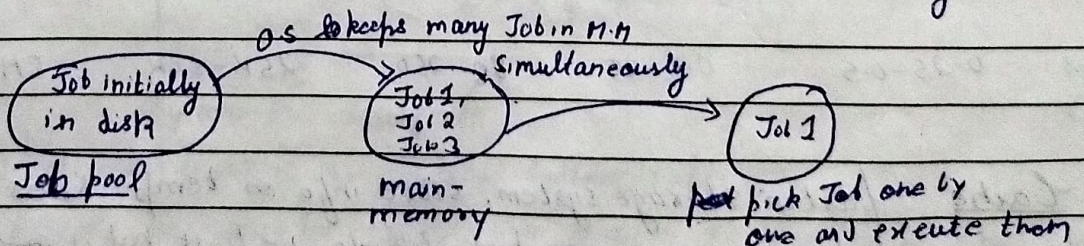 OS keeps many Job in M.M
simultaneously
Job initially
in disk
Job pool
Job 1,
Job 2
Job 3
main-
memory
Job 1
pick Job one by
one and execute them